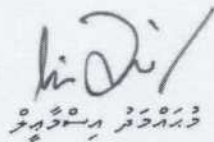 މުޙައްމަދު އިސްމާޢީލް